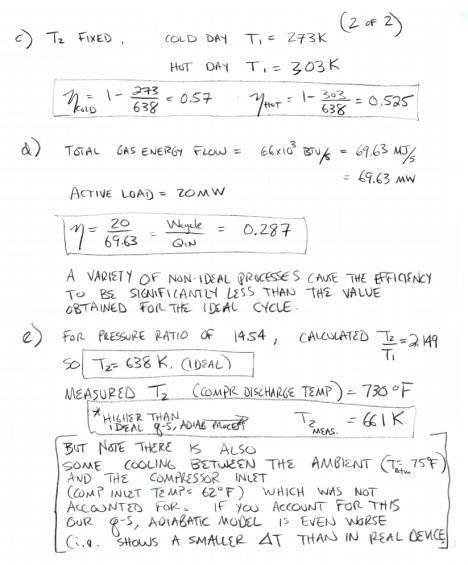 (2 OF 2)
c) T2 FIXED. COLD DAY T1 = 273K
HOT DAY T1 = 303K
ηCOLD = 1 - 273/638 = 0.57 ηHOT = 1 - 303/638 = 0.525
d) TOTAL GAS ENERGY FLOW = 66x10³ BTU/s = 69.63 MJ/s
= 69.63 MW
ACTIVE LOAD = 20MW
η = 20/69.63 = Wcycle/QIN = 0.287
A VARIETY OF NON-IDEAL PROCESSES CAUSE THE EFFICIENCY
TO BE SIGNIFICANTLY LESS THAN THE VALUE
OBTAINED FOR THE IDEAL CYCLE.
e) FOR PRESSURE RATIO OF 14.54, CALCULATED T2/T1 = 2.149
SO T2 = 638 K. (IDEAL)
MEASURED T2 (COMPR DISCHARGE TEMP) = 730 °F
*HIGHER THAN
IDEAL q-S, ADIAB PROCESS T2 MEAS. = 661 K
BUT NOTE THERE IS ALSO
SOME COOLING BETWEEN THE AMBIENT (Tatm = 75°F)
AND THE COMPRESSOR INLET
(COMP INLET TEMP = 62°F) WHICH WAS NOT
ACCOUNTED FOR. IF YOU ACCOUNT FOR THIS
OUR q-S, ADIABATIC MODEL IS EVEN WORSE
(i.e. SHOWS A SMALLER ΔT THAN IN REAL DEVICE)